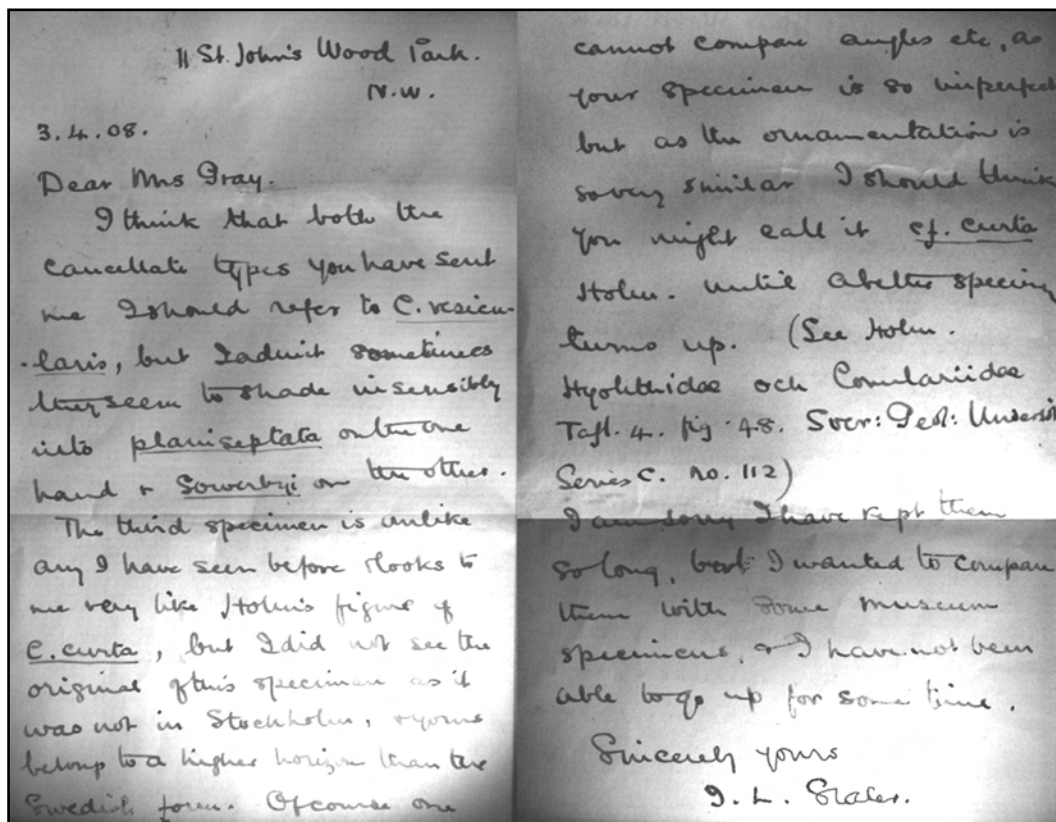 11 St. John's Wood Park.
N.W.
3.4.08.
Dear Mrs Gray.
I think that both the
cancellate types you have sent
me I should refer to C. vesicu-
-laris, but I admit sometimes
they seem to shade insensibly
into planiseptata on the one
hand & Sowerbyi on the other.
The third specimen is unlike
any I have seen before & looks to
me very like Holm's figure of
C. curta, but I did not see the
original of this specimen as it
was not in Stockholm, & yours
belongs to a higher horizon than the
Swedish form. Of course one
cannot compare angles etc, as
your specimen is so imperfect
but as the ornamentation is
so very similar I should think
you might call it cf. curta
Holm. until a better specimen
turns up. (See Holm.
Hyolithidae och Conulariidae
Tafl. 4. fig. 48. Sver: Geol: Undersök
Series C. no. 112)
I am sorry I have kept them
so long, but I wanted to compare
them with some museum
specimens, & I have not been
able to go up for some time.
Sincerely yours
I. L. Slater.